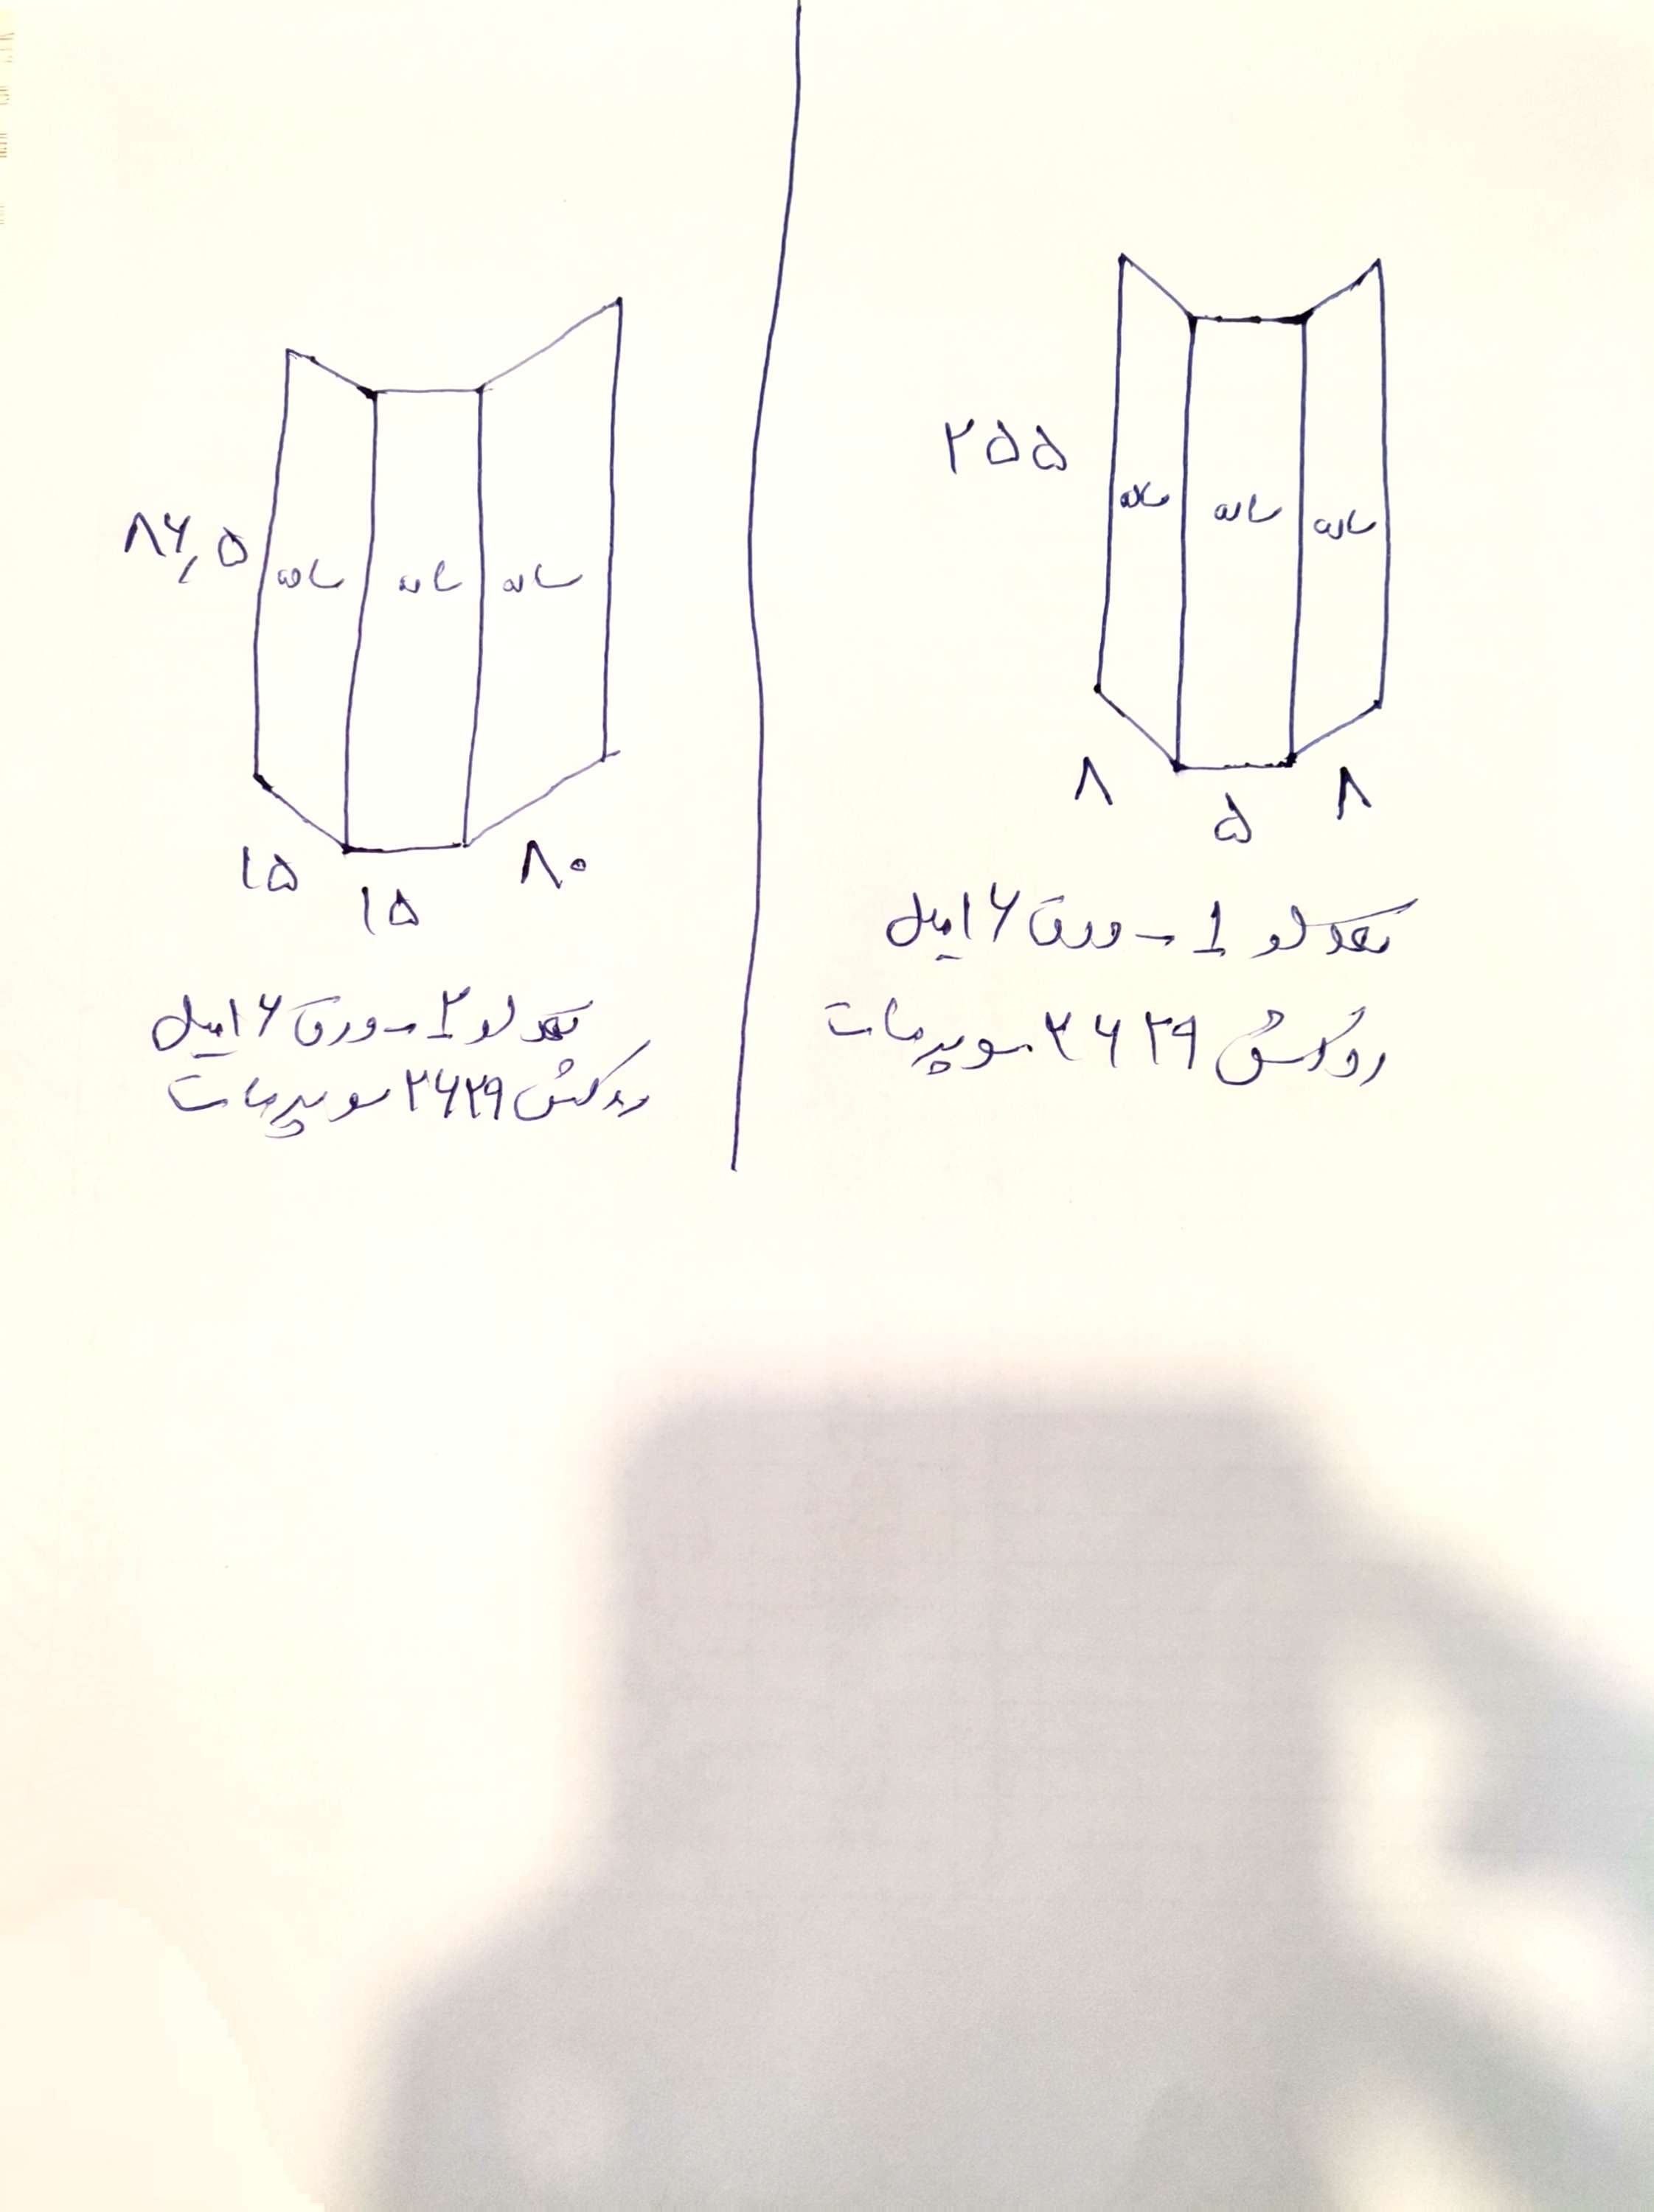 ۲۵۵
ساده ساده ساده
۸ ۵ ۸
تعداد لو 1 - ورق ۱۶ میل
روکش ۲۶۲۹ سوپرمات
۸۶,۵
ساده ساده ساده
۱۵ ۱۵ ۸۰
تعداد لو ۲ - ورق ۱۶ میل
روکش ۲۶۲۹ سوپرمات